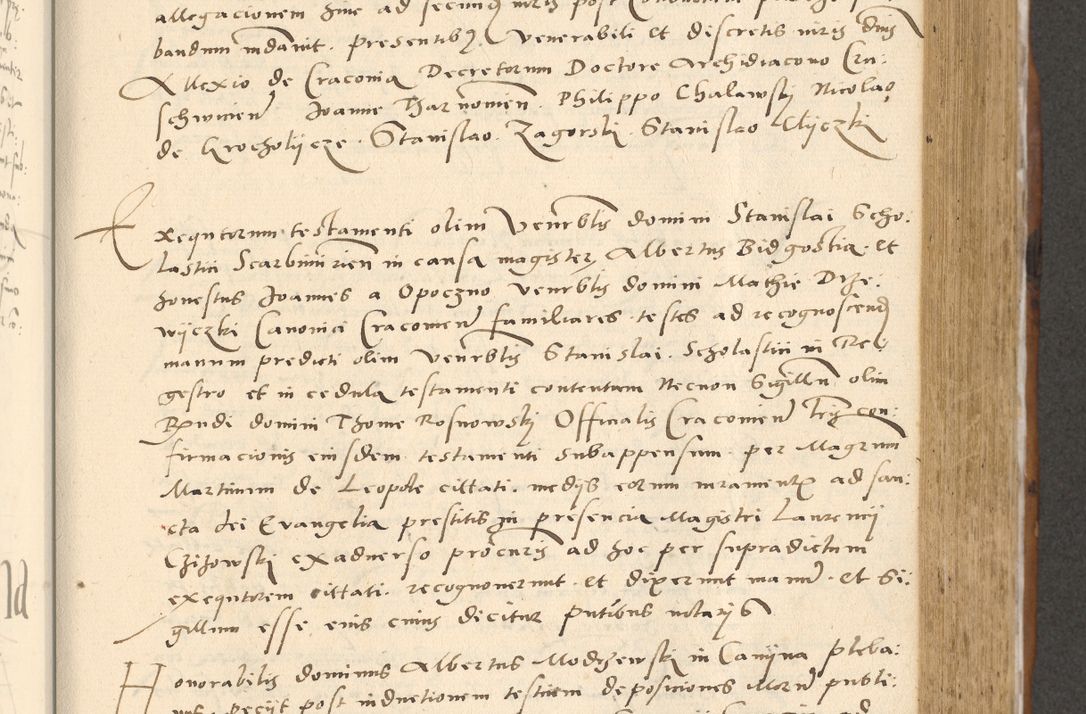 allegacionem sive ad secund iuris post
bandum mdavit. presentibꝫ Venerabili et discretis viris dnis
Allexio de Craconia Decretorum Doctore Archidiacono Cru:
schwicien Joanne Tharnomien. Philippo Chalawskj Nicolao
de Krocholijcze. Stanislao. Zagorskj. Stanislao Clijczkj
Exequtorum testamenti olim Venrblis domini Stanislai Scho:
lastici Scarbimirien in causa magister Albertus Bidgostia. et
honestus Joannes a Opoczno venrblis domini Mathie Drze:
wijczki Canonici Cracowien familiares. testes ad recognoscend
manum predicti olim Venrblis Stanislai. Scholastici in Re
gestro et in cedula testamenti contentam Necnon Sigillu olim
Rxndi domini Thome Rosnowskj Officialis Cracowien lris con:
firmacionis eiusdem testamenti subappensum. per Magrum
Martinum de Leopole cittati. medijs eorum iuramentis ad san:
cta dei Evangelia prestitis in presencia Magistri Laurencij
Czizowskj ex adverso procuris ad hoc per supradictum
exequtorem cittati. recognoverunt. et dixerunt manu. et Si:
gillum esse eius cuius dicitur pntibus notarijs
Honorabilis dominus Albertus Modzewskj in Canijna pleba:
nus. pecijt post inductionem testium deposiciones Morum publi: